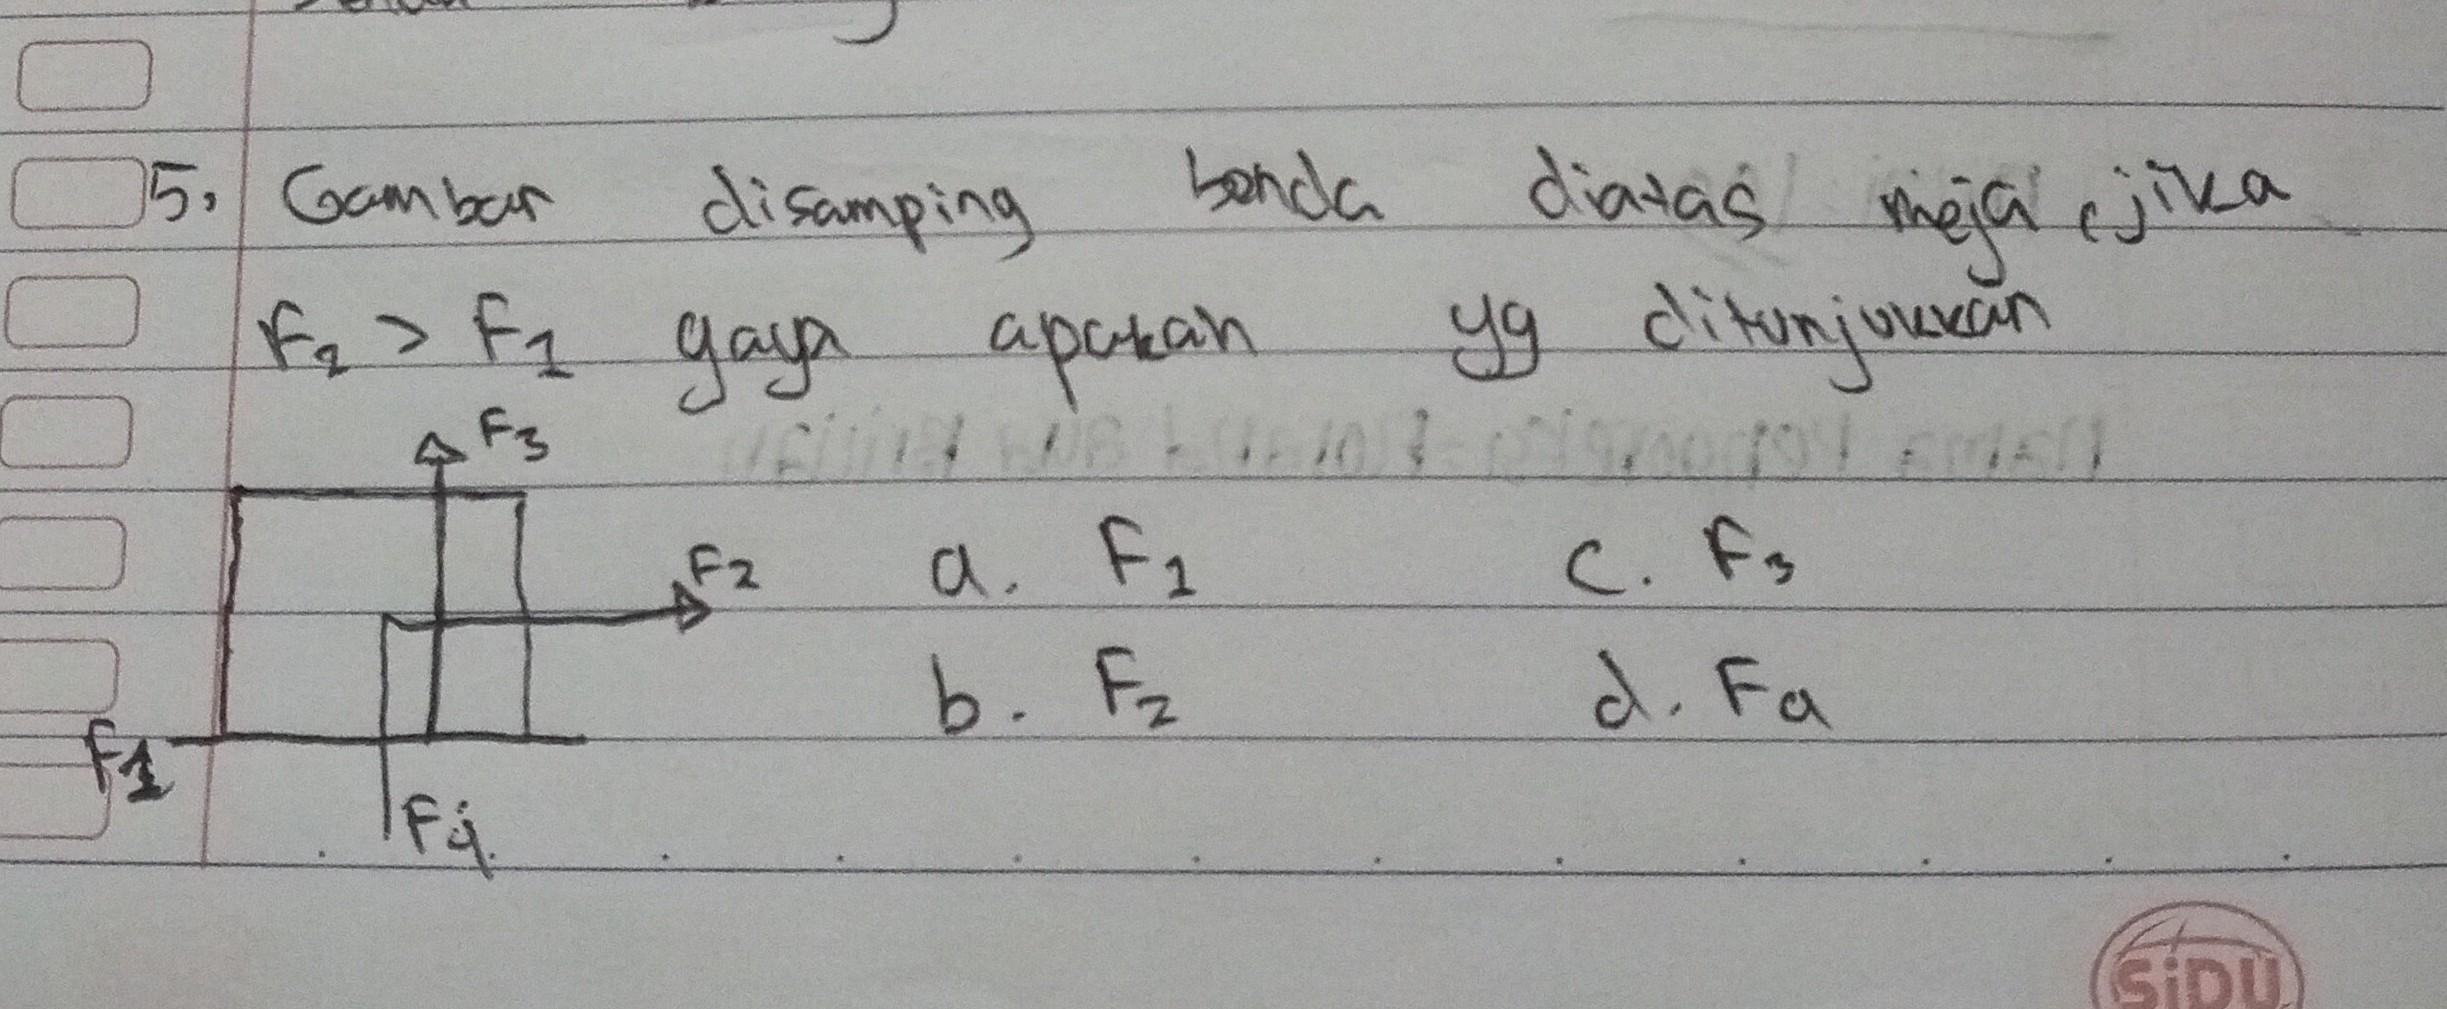 5. Gambar disamping benda diatas meja, jika
F2 > F1 gaya apakah yg ditunjukkan
F3
F2
a. F1 c. F3
b. F2 d. Fa
F1
F4
SiDU